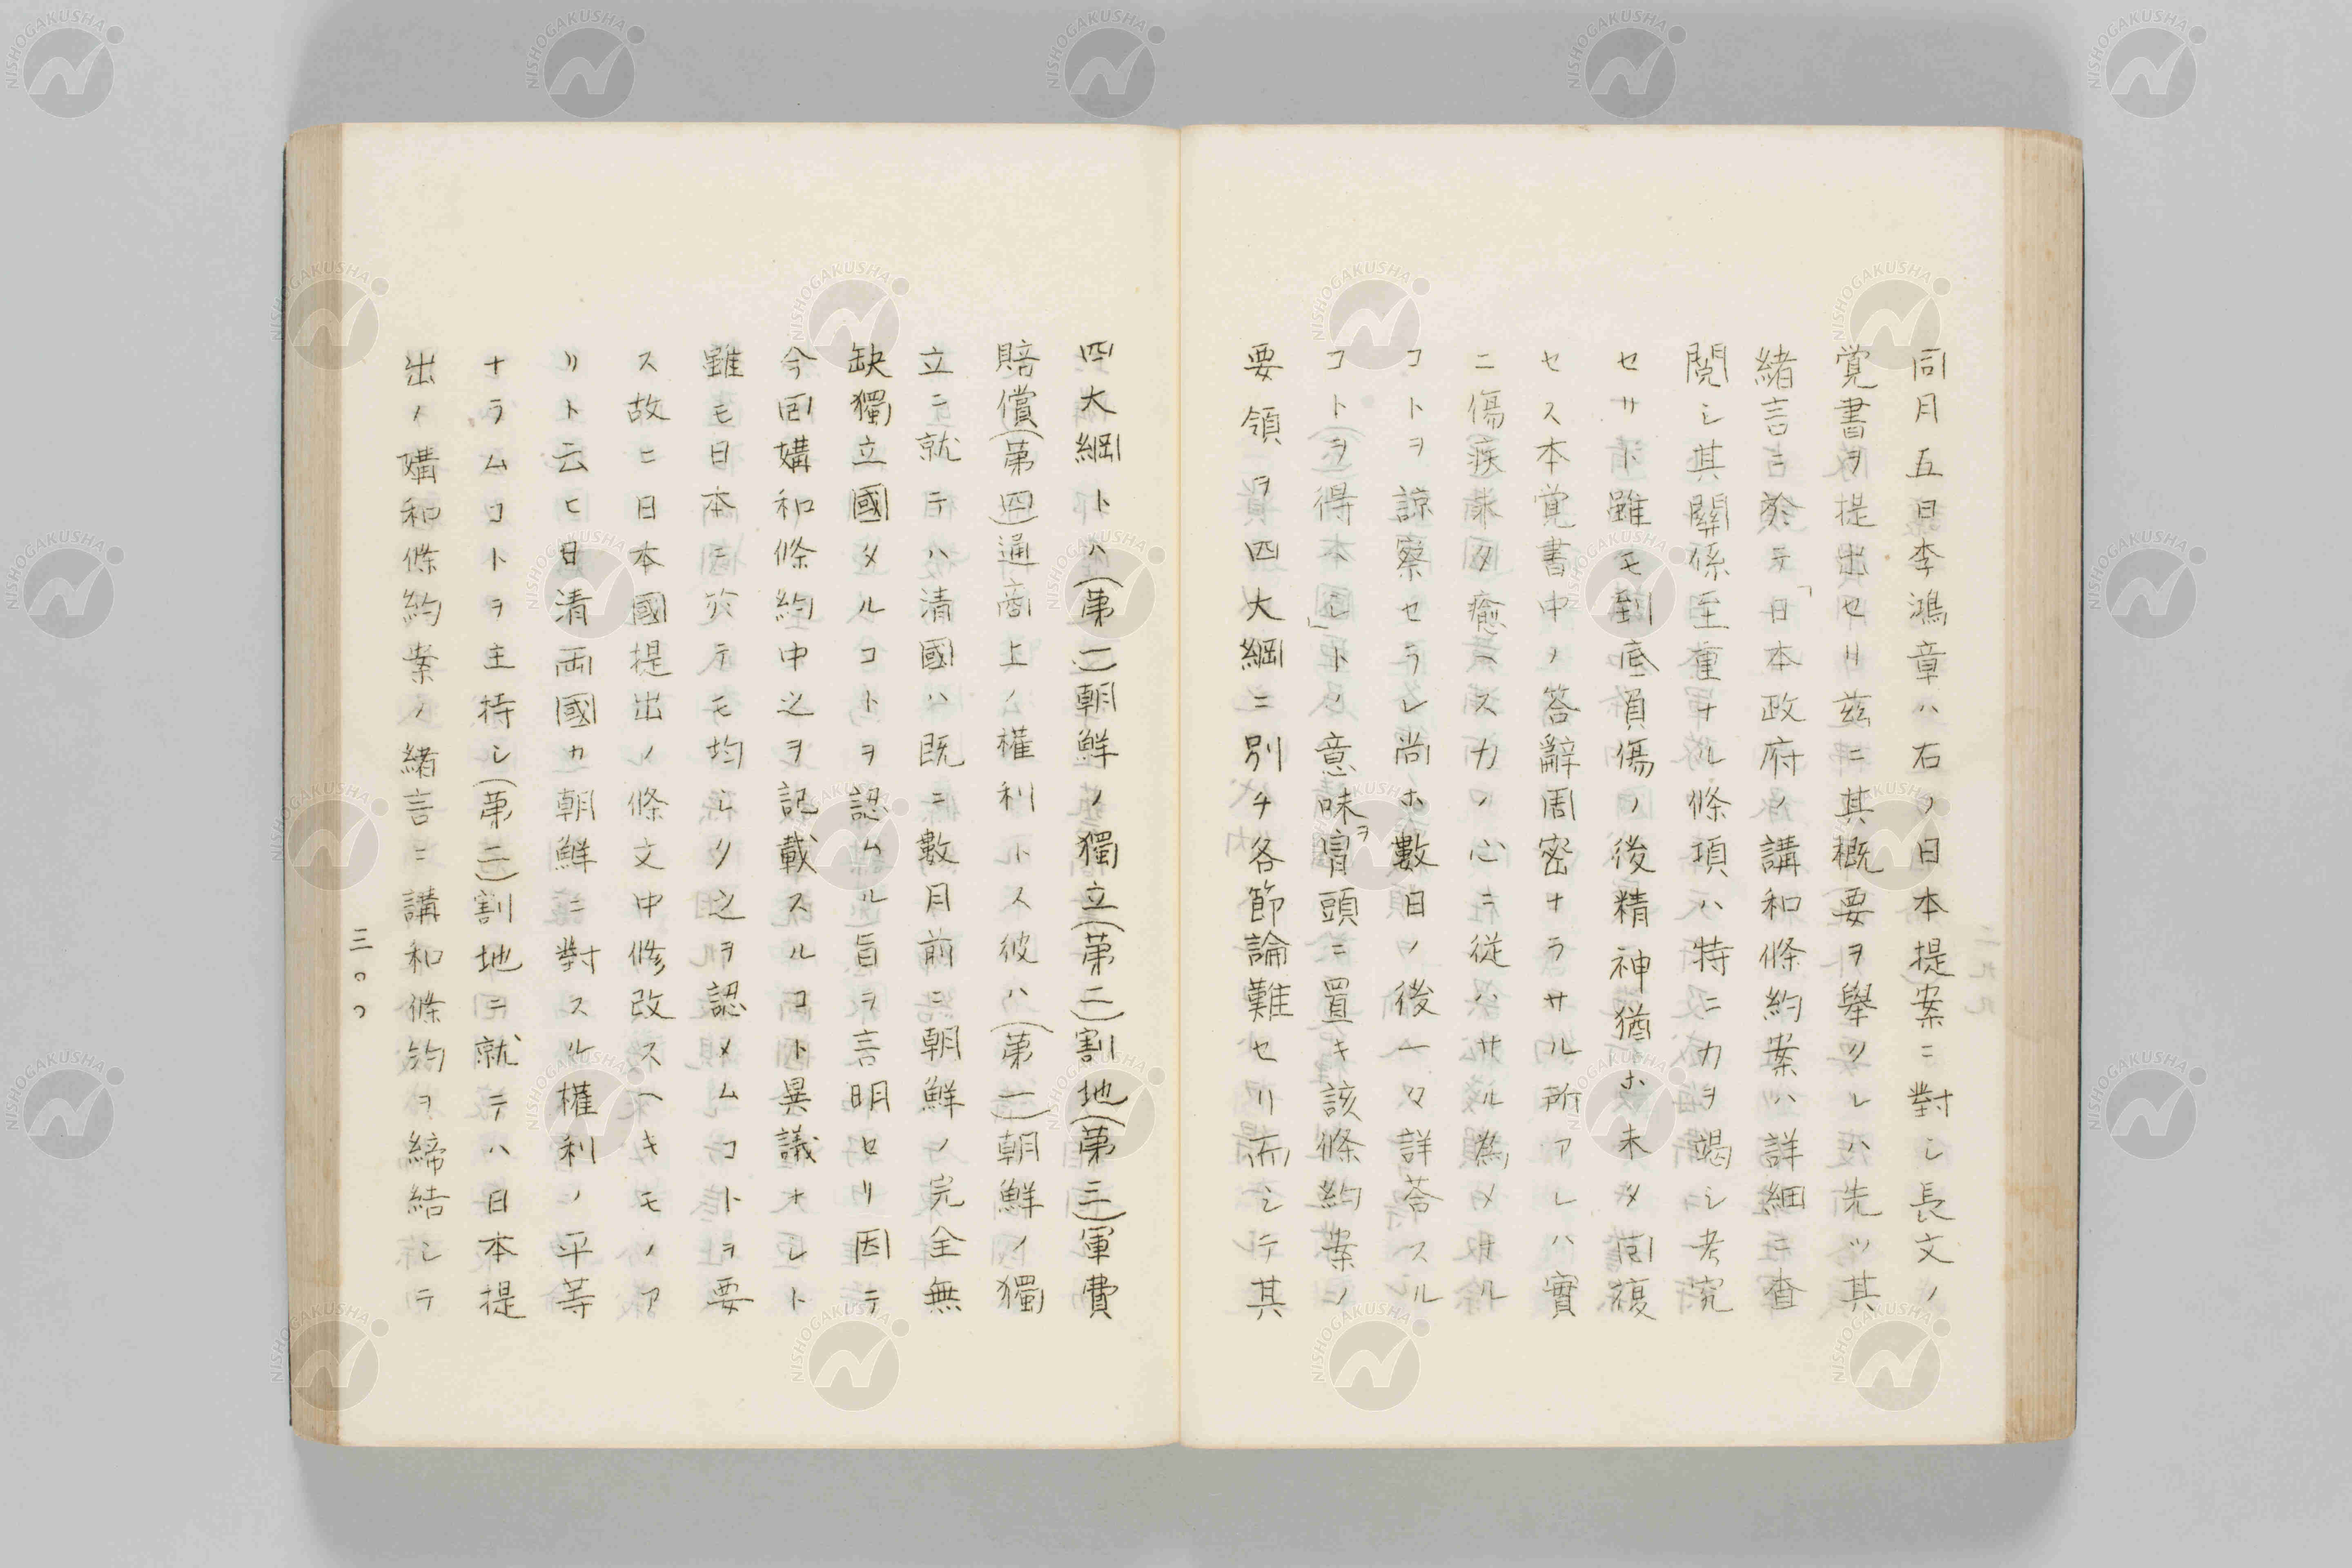 同月五日李鴻章ハ右ノ日本提案ニ對シ長文ノ
覚書ヲ提出セリ茲ニ其概要ヲ舉クレハ先ツ其
緒言ニ於テ「日本政府ノ講和條約案ハ詳細ニ査
閲シ其關係至重ナル條項ハ特ニ力ヲ竭シ考究
セサト雖モ到底負傷ノ後精神猶ホ未タ囘復
セス本覚書中ノ答辭周密ナラサル所アレハ實
ニ傷痍未タ癒ヘスカノ心ニ從ハサル為メサル
コトヲ諒察セラレ尚ホ數日ノ後一々詳荅スル
コトヲ得ン」トノ意味ヲ冐頭ニ置キ該條約案ノ
要領ヲ四大綱ニ別チ各節論難セリ而シテ其
四大綱トハ(第一)朝鮮ノ獨立(第二)割地(第三)軍費
賠償(第四)通商上ノ權利トス彼ハ(第一)朝鮮ノ獨
立ニ就テハ清國ハ既ニ數月前ニ朝鮮ノ完全無
缺獨立國タルコトヲ認ムル旨ヲ言明セリ因テ
今囘媾和條約中之ヲ記載スルコト異議ナレト
雖モ日本ニ於テモ均シク之ヲ認メムコトヲ要
ス故ニ日本國提出ノ條文中修改スヘキモノア
リト云ヒ日清両國カ朝鮮ニ對スル權利ノ平等
ナラムコトヲ主持シ(第二)割地ニ就テハ日本提
出ノ媾和條約案ノ緒言ニ講和條約ヲ締結シテ
三〇〇
NISHOGAKUSHA